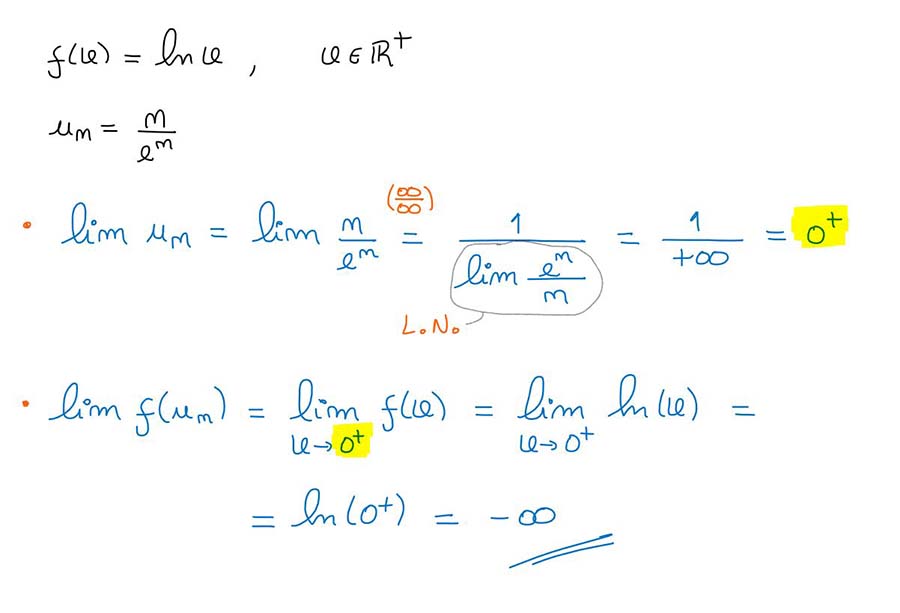 f(x) = ln x , x ∈ ℝ⁺
uₙ = n/eⁿ
(∞/∞)
• lim uₙ = lim n/eⁿ = 1/(lim eⁿ/n) = 1/+∞ = 0⁺
L.N.
• lim f(uₙ) = lim x→0⁺ f(x) = lim x→0⁺ ln(x) =
= ln(0⁺) = -∞